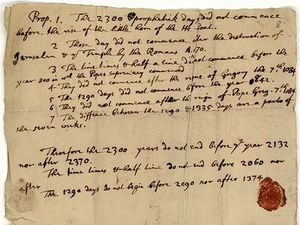 Prop. 1. The 2300 prophetick days did not commence
before the rise of the little horn of the He Goat.
2 Those day did not commence after the destruction of
Jerusalem & ye Temple by the Romans A. 70.
3 The time times & half a time did not commence before the
year 800 in wch the Popes supremacy commenced
4 They did not commence after the reigne of Gregory the 7th. 1084
5 The 1290 days did not commence before the year 842.
6 They did not commence after the reigne of Pope Greg. 7th. 1084
7 The diffence between the 1290 & 1335 days are a parts of
the seven weeks.
Therefore the 2300 years do not end before ye year 2132
nor after 2370.
The time times & half time do not end before 2060 nor
after
The 1290 days do not begin before 2090 nor after 1374